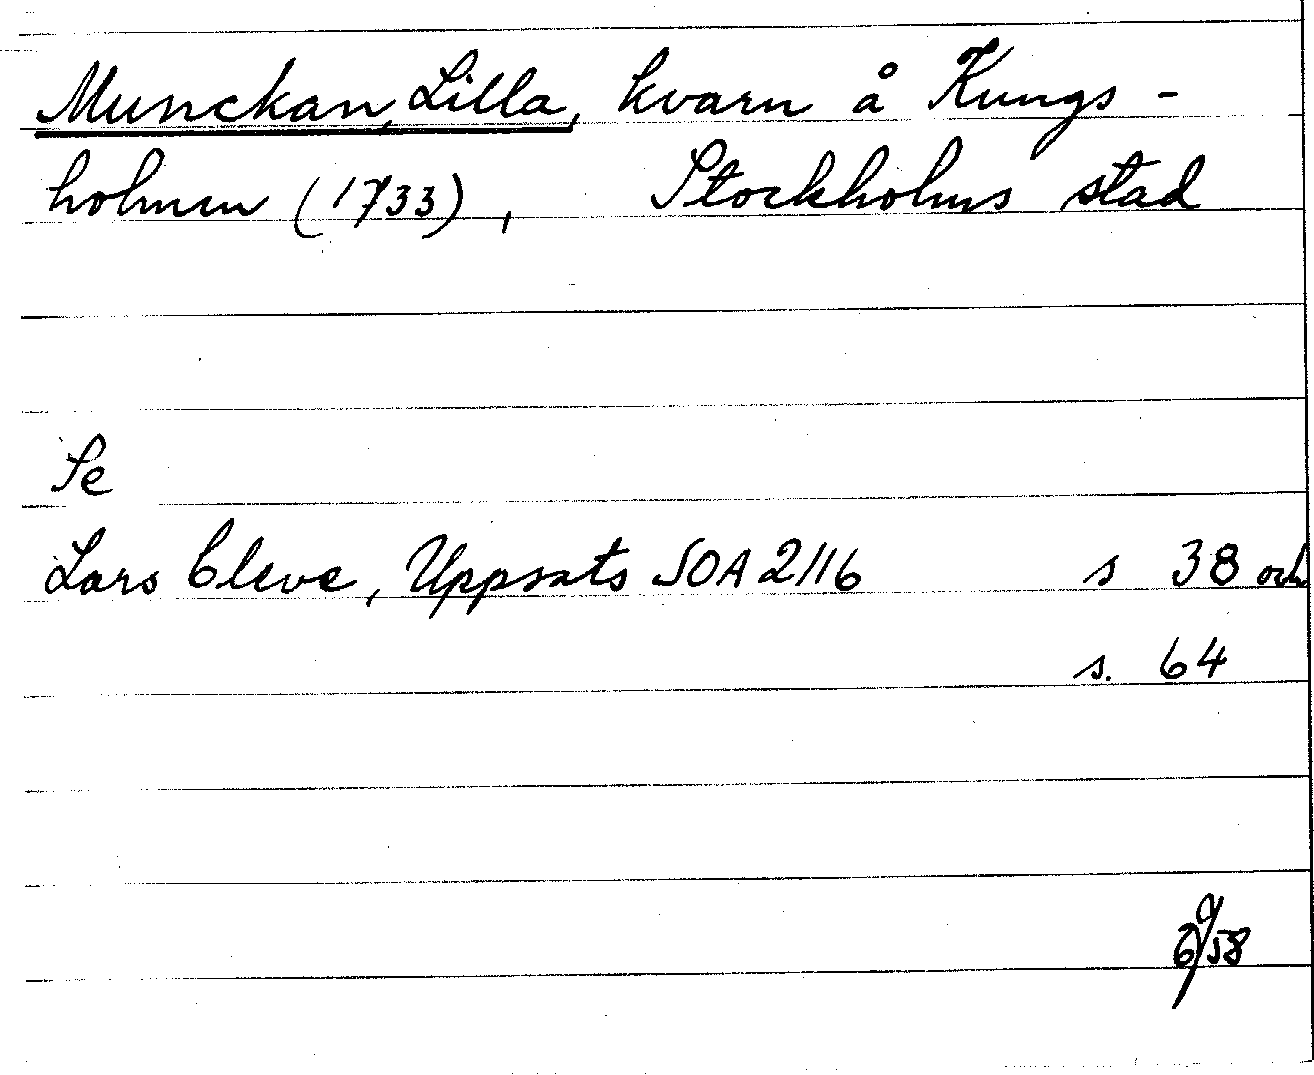 Munckan, Lilla, kvarn å Kungs-
holmen (1733), Stockholms stad
Se
Lars Cleve, Uppsats SOA 2116 s 38 och
s. 64